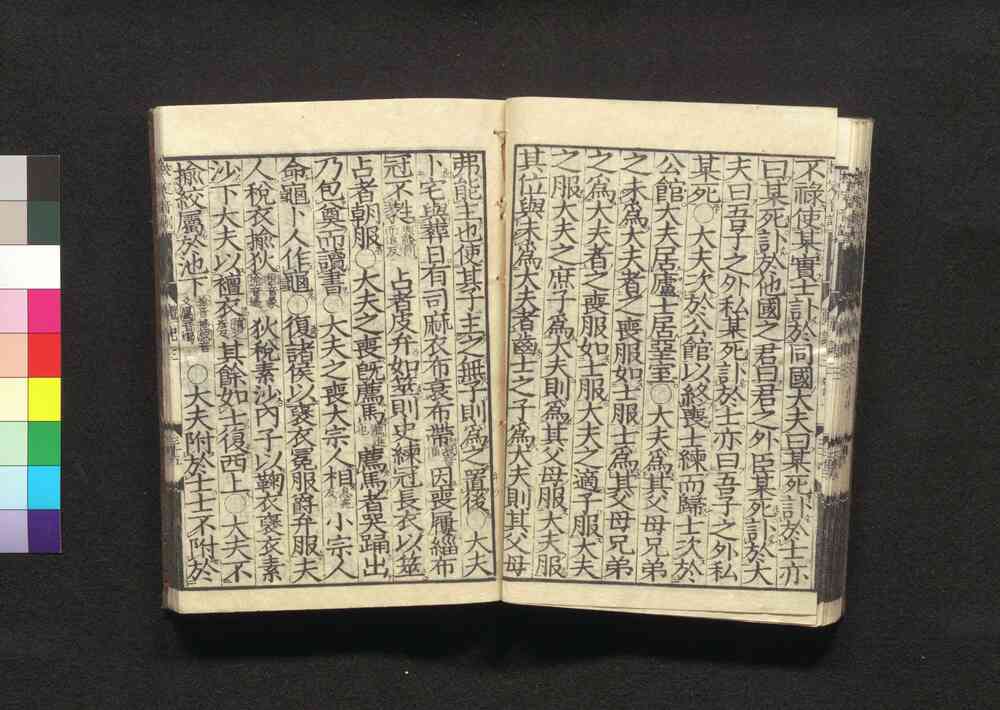 不祿使某實士訃於同國大夫曰某死訃於士亦
曰某死訃於他國之君曰君之外臣某死訃於大
夫曰吾子之外私某死訃於士亦曰吾子之外私
某死○大夫次於公館以終喪士練而歸士次於
公館大夫居廬士居堊室○大夫爲其父母兄弟
之未爲大夫者之喪服如士服士爲其父母兄弟
之爲大夫者之喪服如士服大夫之適子服大夫
之服大夫之庶子爲大夫則爲其父母服大夫服
其位與未爲大夫者齒士之子爲大夫則其父母
弗能主也使其子主之無子則爲之置後○大夫
卜宅與葬日有司麻衣布衰布帶因喪屨緇布
冠不蕤占者皮弁如筮則史練冠長衣以筮
占者朝服○大夫之喪旣薦馬薦馬者哭踊出
乃包奠而讀書○大夫之喪大宗人相小宗人
命龜卜人作龜○復諸侯以襃衣冕服爵弁服夫
人稅衣揄狄狄稅素沙內子以鞠衣襃衣素
沙下大夫以襢衣其餘如士復西上○大夫不
揄絞屬於池下○大夫附於士士不附於